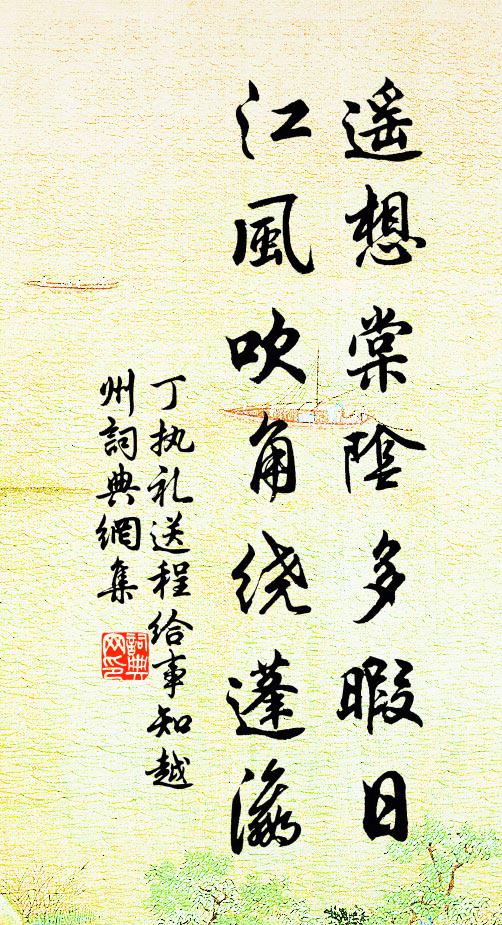 遥想棠陰多暇日
江風吹角绕蓬瀛
丁执礼送程给事知越
州詞典網集
詞典
网印